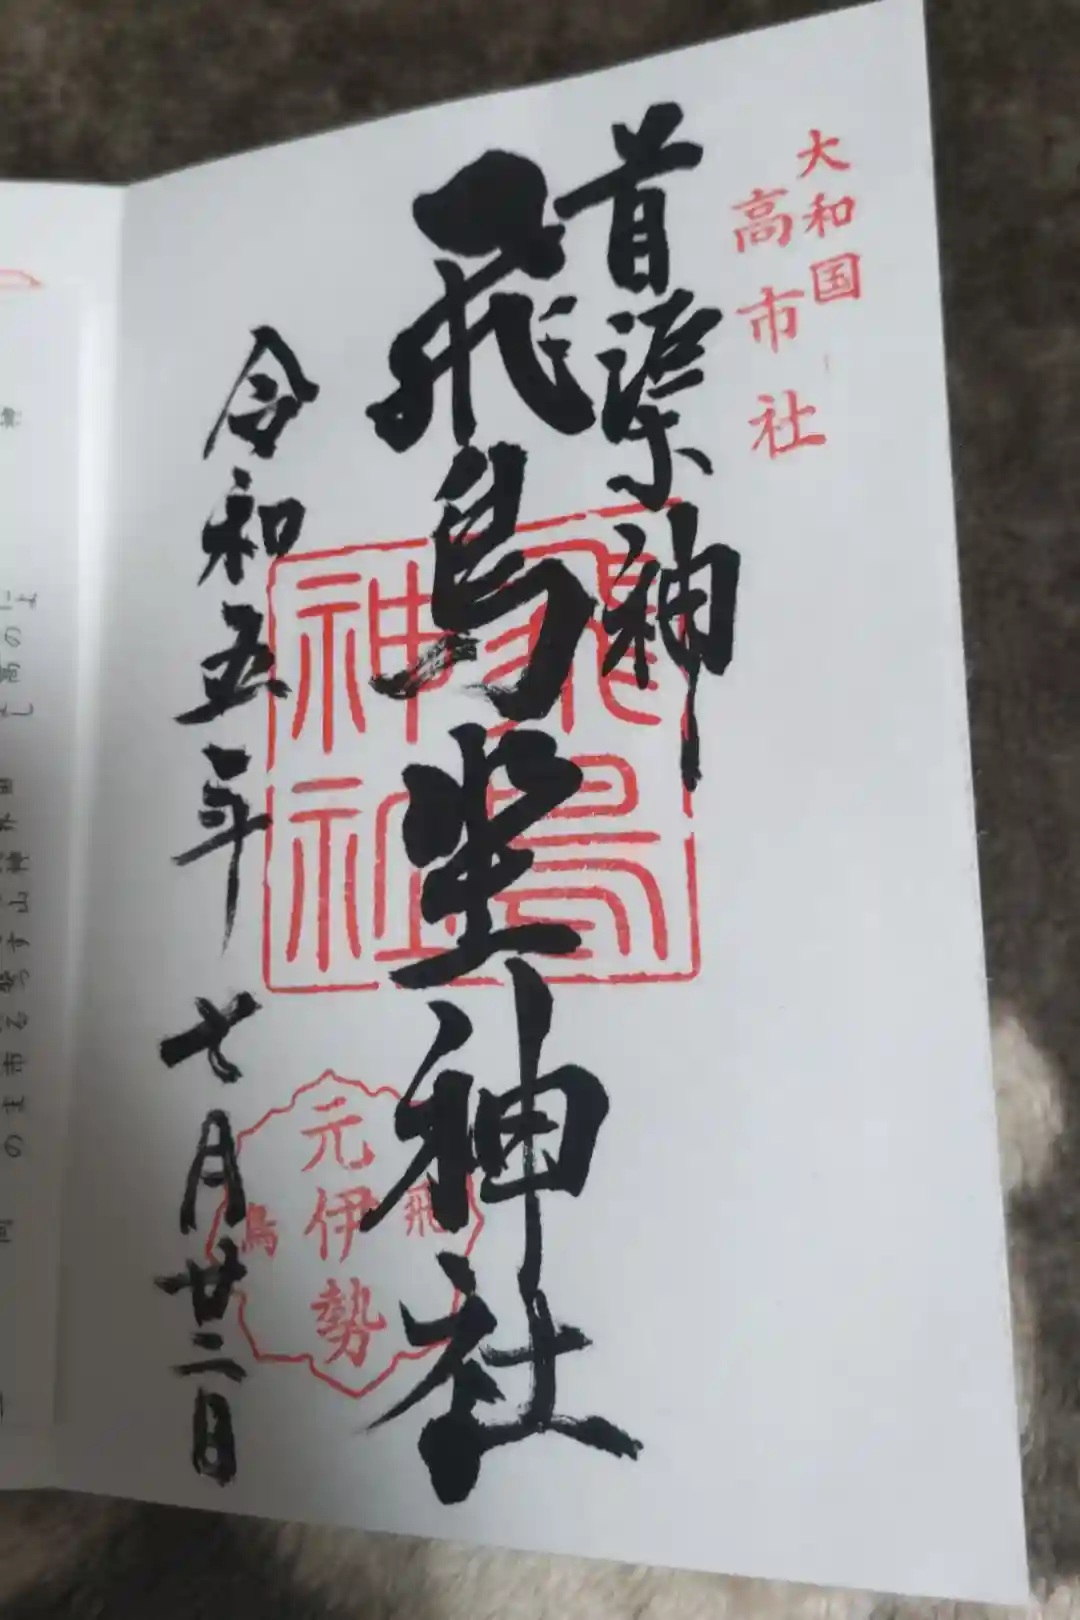 大和国
高市社
首渠神
飛鳥坐神社
令和五年 七月廿二日
飛鳥
神社
飛鳥
元伊勢